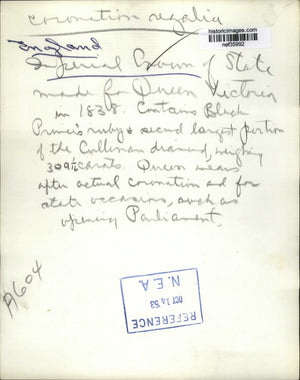 coronation regalia
historicimages.com
net35992
England
Imperial Crown of State
made for Queen Victoria
in 1838. Contains Black
Prince's ruby & second largest portion
of the Cullenan diamond, weighing
309½ carats. Queen wears
after actual coronation and for
state occasions, such as
opening Parliament.
A604
REFERENCE
OCT 14 '53
N. E. A.